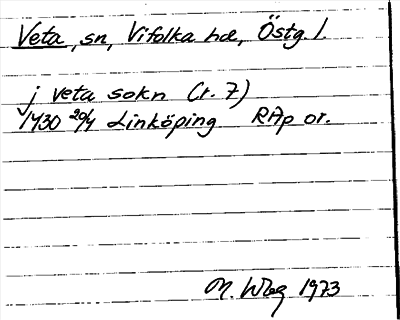 Veta, sn, Vifolka hd, Östg. l.
j veta sokn (r. 7)
1430 20/4 Linköping RAp or.
M. Wbg 1973